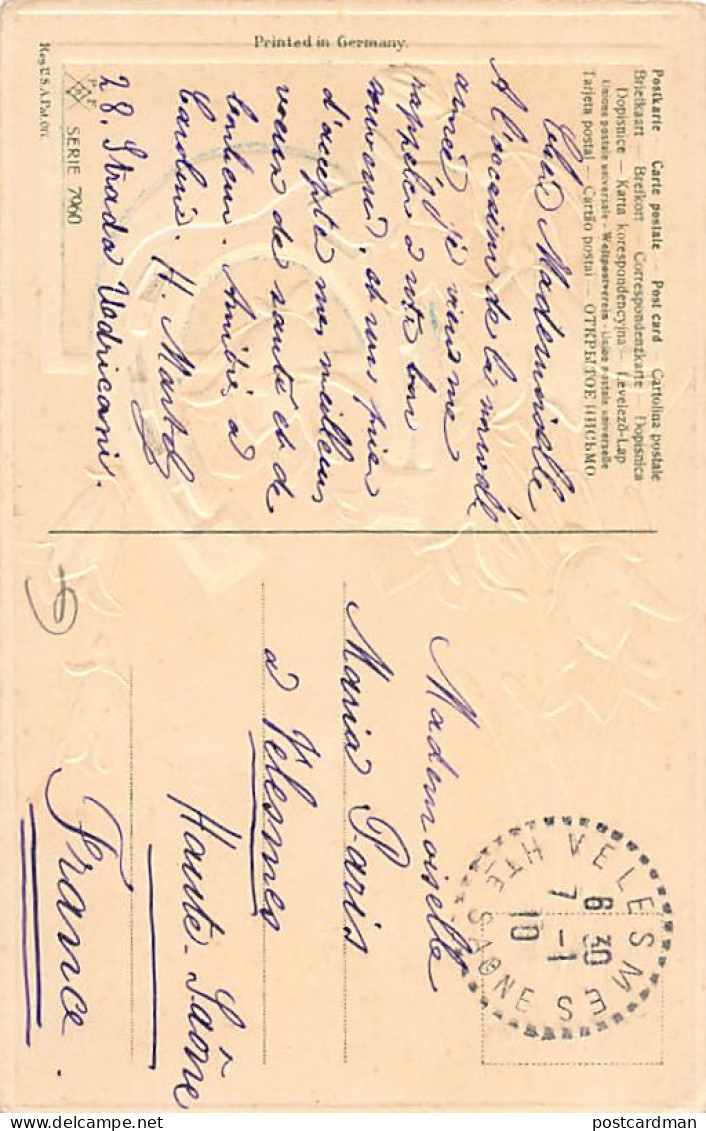 Postkarte — Carte postale — Post card — Cartolina postale
Briefkaart — Brefkort — Correspondenzkarte — Dopisnica
Dopisnice — Karta korespondencyjna — Levelező-Lap
Unione postale universale - Weltpostverein - Union postale universelle
Tarjeta postal — Cartão postal — ОТКРЫТОЕ ПИСЬМО
Printed in Germany.
Chère Mademoiselle
A l'occasion de la nouvelle
année, je viens me
rappeler à votre bon
souvenir, et vous prier
d'accepter mes meilleurs
voeux de santé et de
bonheur. Amitiés à
Caroline. H.
28. Strada
P F B
SERIE 7960
Reg. U.S.A. Pat. Off.
Mademoiselle
Maria Paris
à Velesmes
Haute-Saône
France.
VELESMES
HTE SAONE
6 30
7 -1
10
postcardman